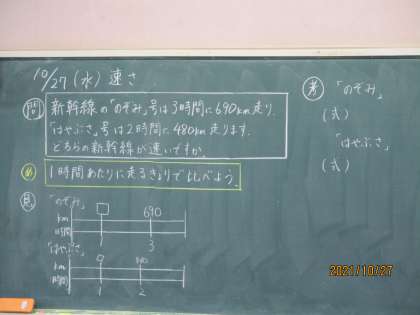 10/27(水)速さ
問 新幹線の「のぞみ」号は3時間に690km走り、
「はやぶさ」号は2時間に480km走ります。
どちらの新幹線が速いですか。
め 1時間あたりに走るきょりで比べよう。
見 「のぞみ」
□ 690
km
時間
1 3
「はやぶさ」
□ 480
km
時間
1 2
考 「のぞみ」
(式)
「はやぶさ」
(式)
2021/10/27